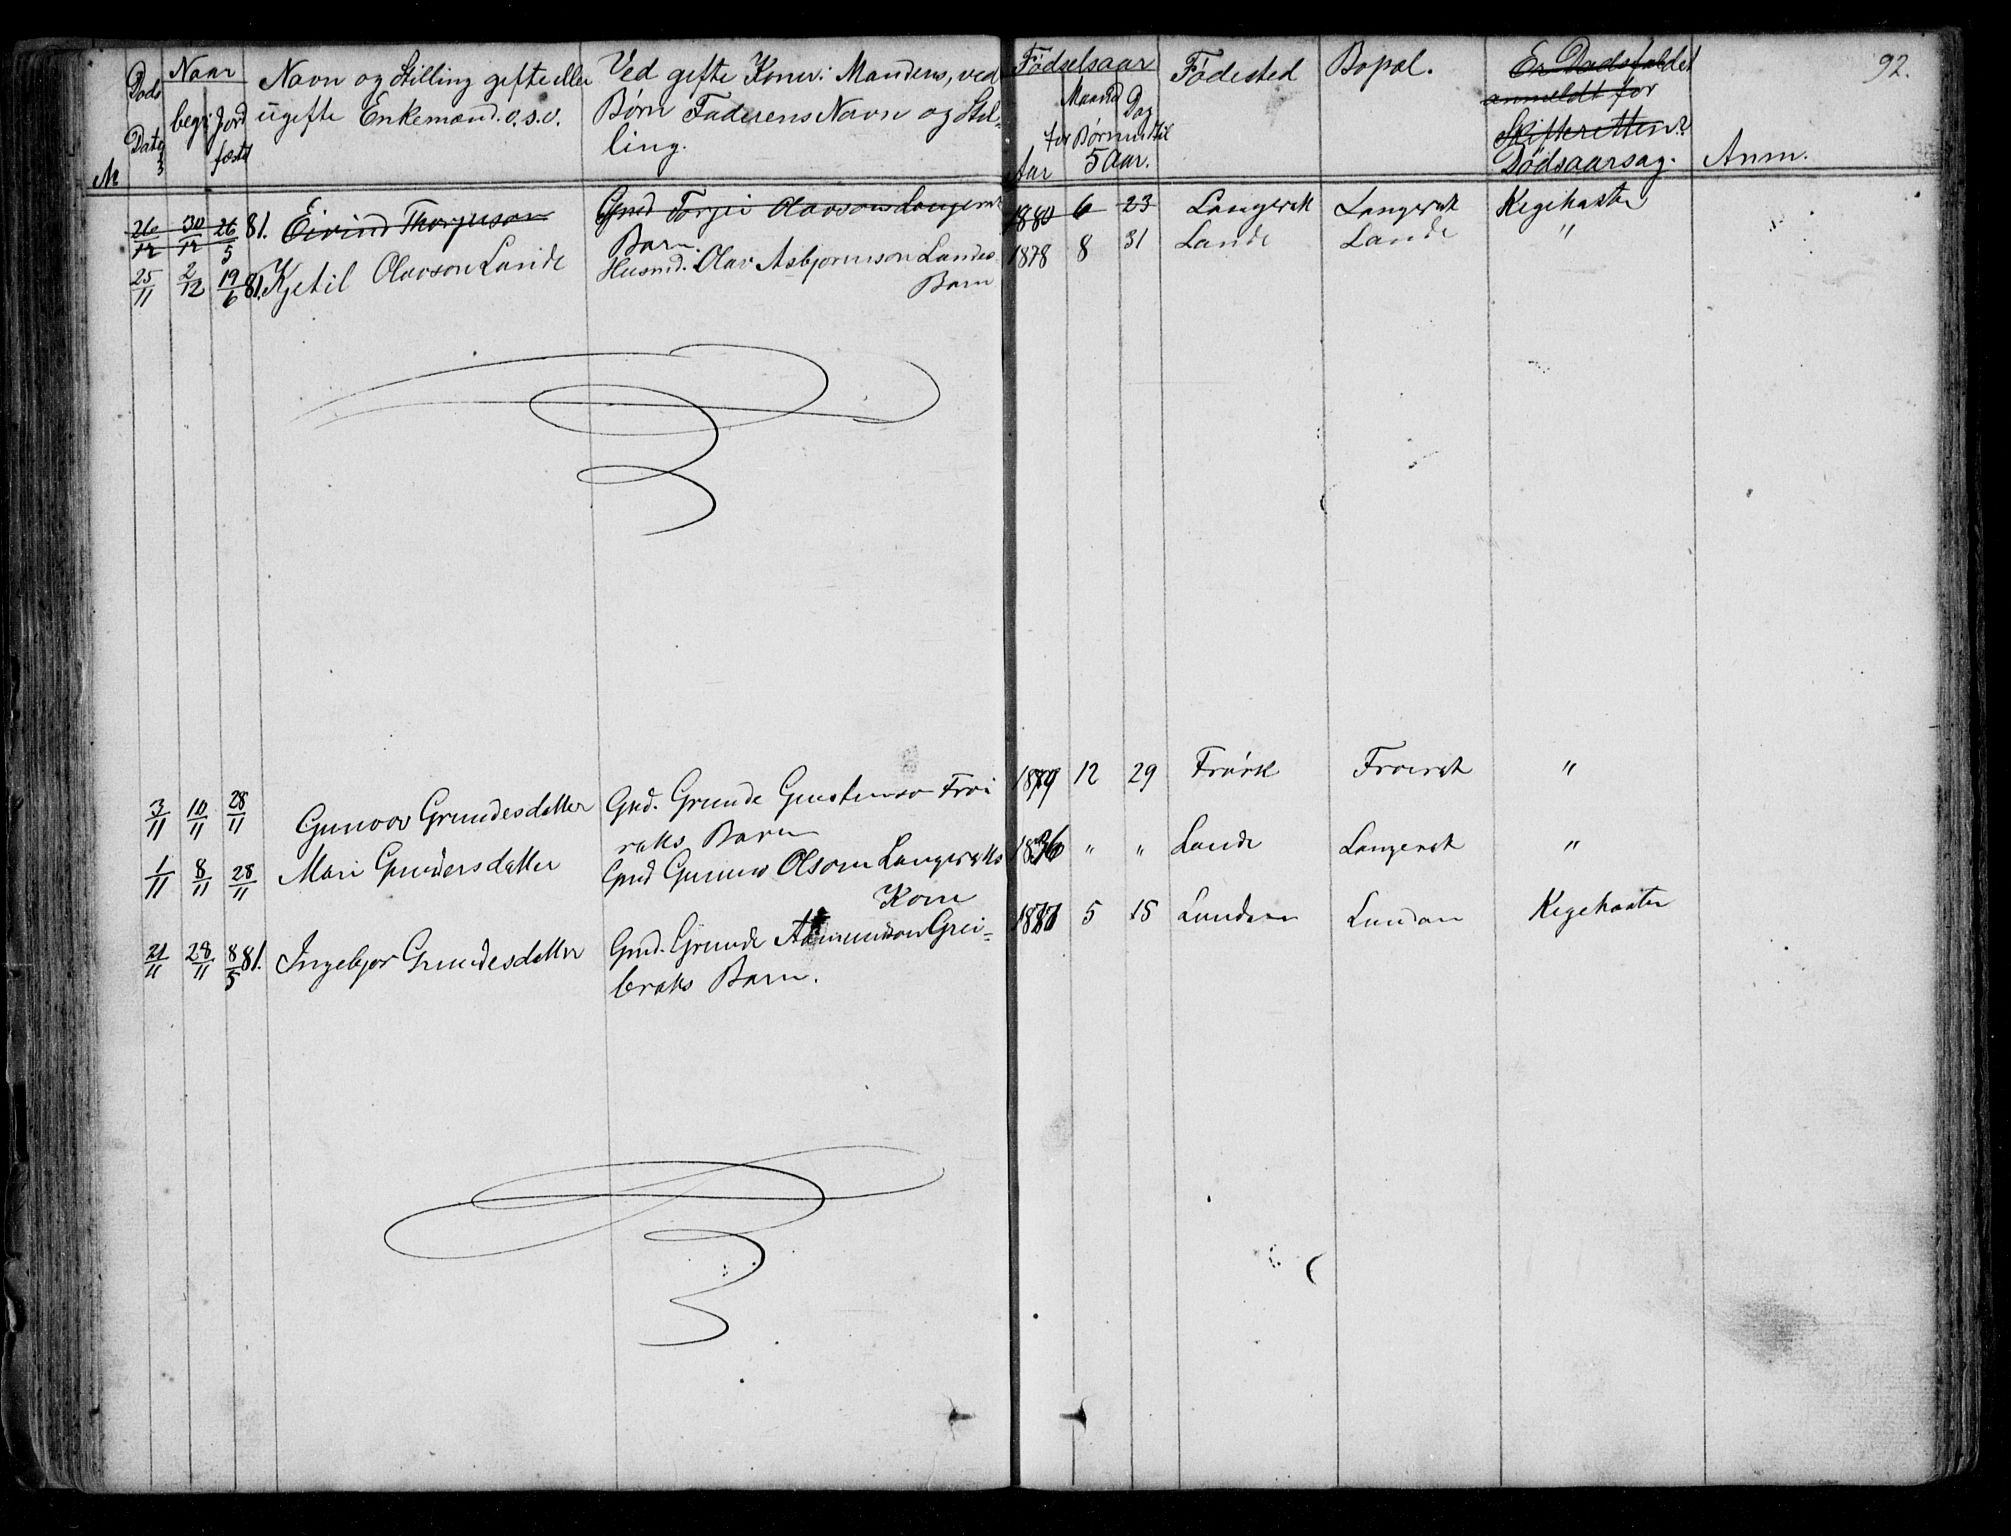 92.
Døds Dato
Naar
begr. Jord fæstet
Navn og Stilling gifte eller
ugifte Enkemænd. o.s.v.
Ved gifte Koner: Mandens, ved
Børn Faderens Navn og Stil-
ling.
Fødselsaar
Aar
Maaned Dag
for Børn indtil
5 Aar.
Fødested
Bopæl.
Er Dødsfaldet
anmeldt for
Skifteretten?
Dødsaarsag.
Anm.
M
26/12 30/12 26/5 81. Eivind Thorjusson Gmd Torjei Olavsons Langerak 1880 6 23 Langerak Langerak Kighoste
Barn.
25/11 2/12 19/6 81. Kjetil Olavson Lande Husmd. Olav Asbjørnson Landes 1878 8 31 Lande Lande "
Barn
3/11 10/11 28/11 Gunvor Grundesdatter Gmd. Grunde Froi 1879 12 29 Froirak "
raks Barn
1/11 8/11 28/11 Mari Gundersdatter Gmd Gunnu Olson Langeraks 1836 " " Lande Langerak "
Kone
21/11 28/11 8/5 81. Ingebjor Grundesdatter Gmd. Grunde Amundson Grei- 5 15 Lunden Lunden Kigehoste
braks Barn.